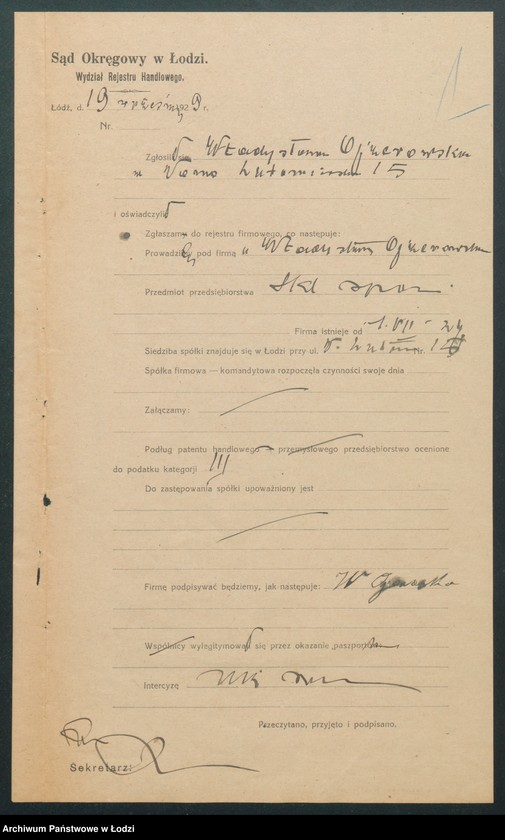 1
Sąd Okręgowy w Łodzi.
Wydział Rejestru Handlowego.
Łódź, d. 19 września 1929 r.
Nr.
Zgłosił się Władysława
15
i oświadczył
Zgłaszamy do rejestru firmowego, co następuje:
Prowadzę pod firmą „Władysława
Przedmiot przedsiębiorstwa Skl spoż.
Firma istnieje od 1.VII-24
Siedziba spółki znajduje się w Łodzi przy ul. Nr.
Spółka firmowa — komandytowa rozpoczęła czynności swoje dnia
Załączamy:
Podług patentu handlowego — przemysłowego przedsiębiorstwo ocenione
do podatku kategorji III
Do zastępowania spółki upoważniony jest
Firmę podpisywać będziemy, jak następuje: W
Wspólnicy wylegitymował się przez okazanie paszportu
Intercyzę nie
Przeczytano, przyjęto i podpisano.
Sekretarz:
Archiwum Państwowe w Łodzi